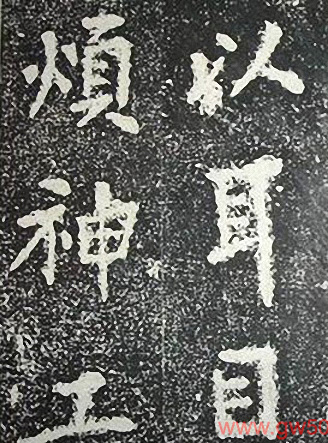 以耳目
煩神工
www.gw50